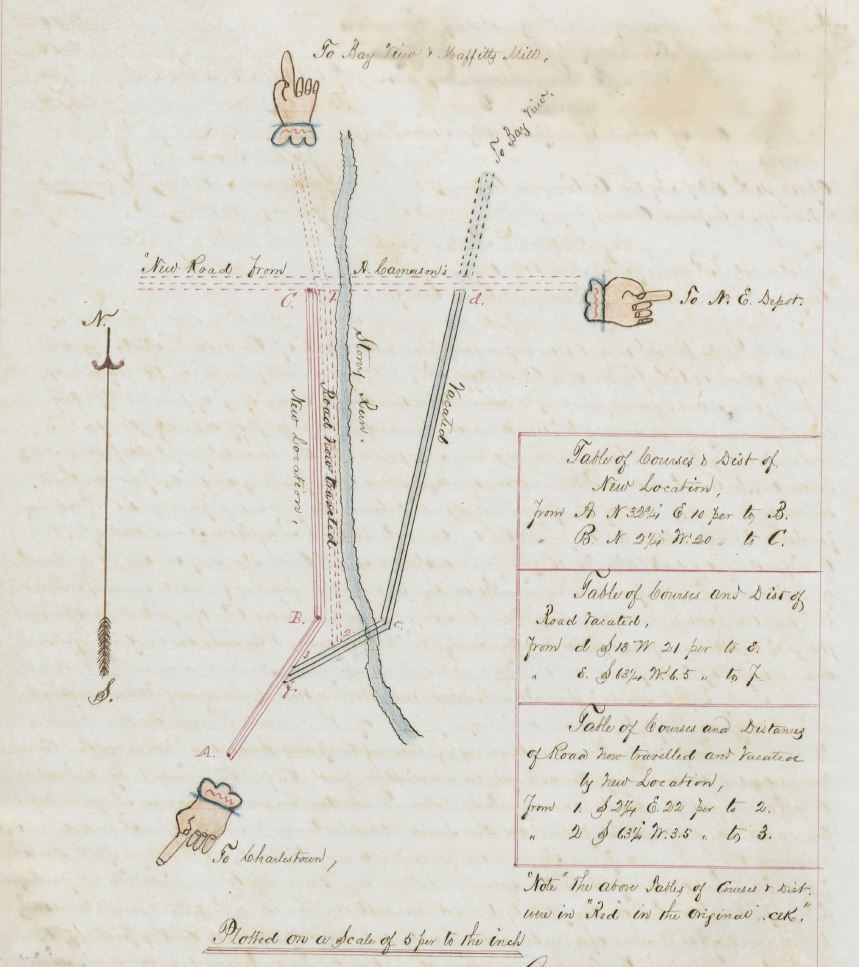 To Bay View & Maffitts Mill,
To Bay View.
"New Road from A. Cameron's
C. 1 d.
To N. E. Depot.
N.
Stony Run.
Vacated
New Location,
Road now traveled
B. 2 e.
3
f
S.
A.
To Charlestown,
Table of Courses & Dist of
New Location,
From A N 32¾ E. 10 per to B.
" B. N. 2¼ W. 20 " to C.
Table of Courses and Dist of
Road Vacated,
From d S 13 W 21 per to E.
" E. S 63¼ W. 6.5 " to f
Table of Courses and Distances
of Road now travelled and Vacated
by New Location,
From 1. S 2¼ E. 22 per to 2.
" 2 S 63¼ W. 3.5 " to 3.
"Note" The above Tables of Courses & Dist.
were in "Red" in the original
Plotted on a Scale of 5 per to the inch